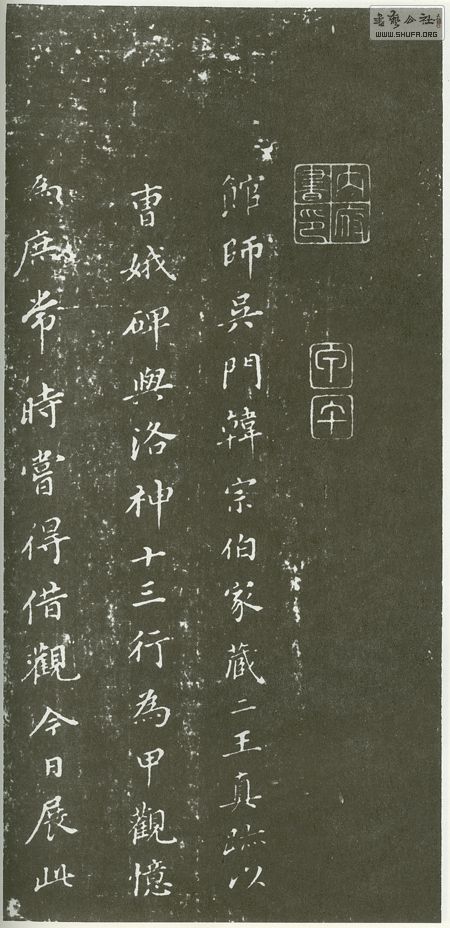 書藝公社
WWW.SHUFA.ORG
內府
書印
館師吳門韓宗伯家藏二王真跡以
曹娥碑與洛神十三行為甲觀憶
為庶常時嘗得借觀今日展此